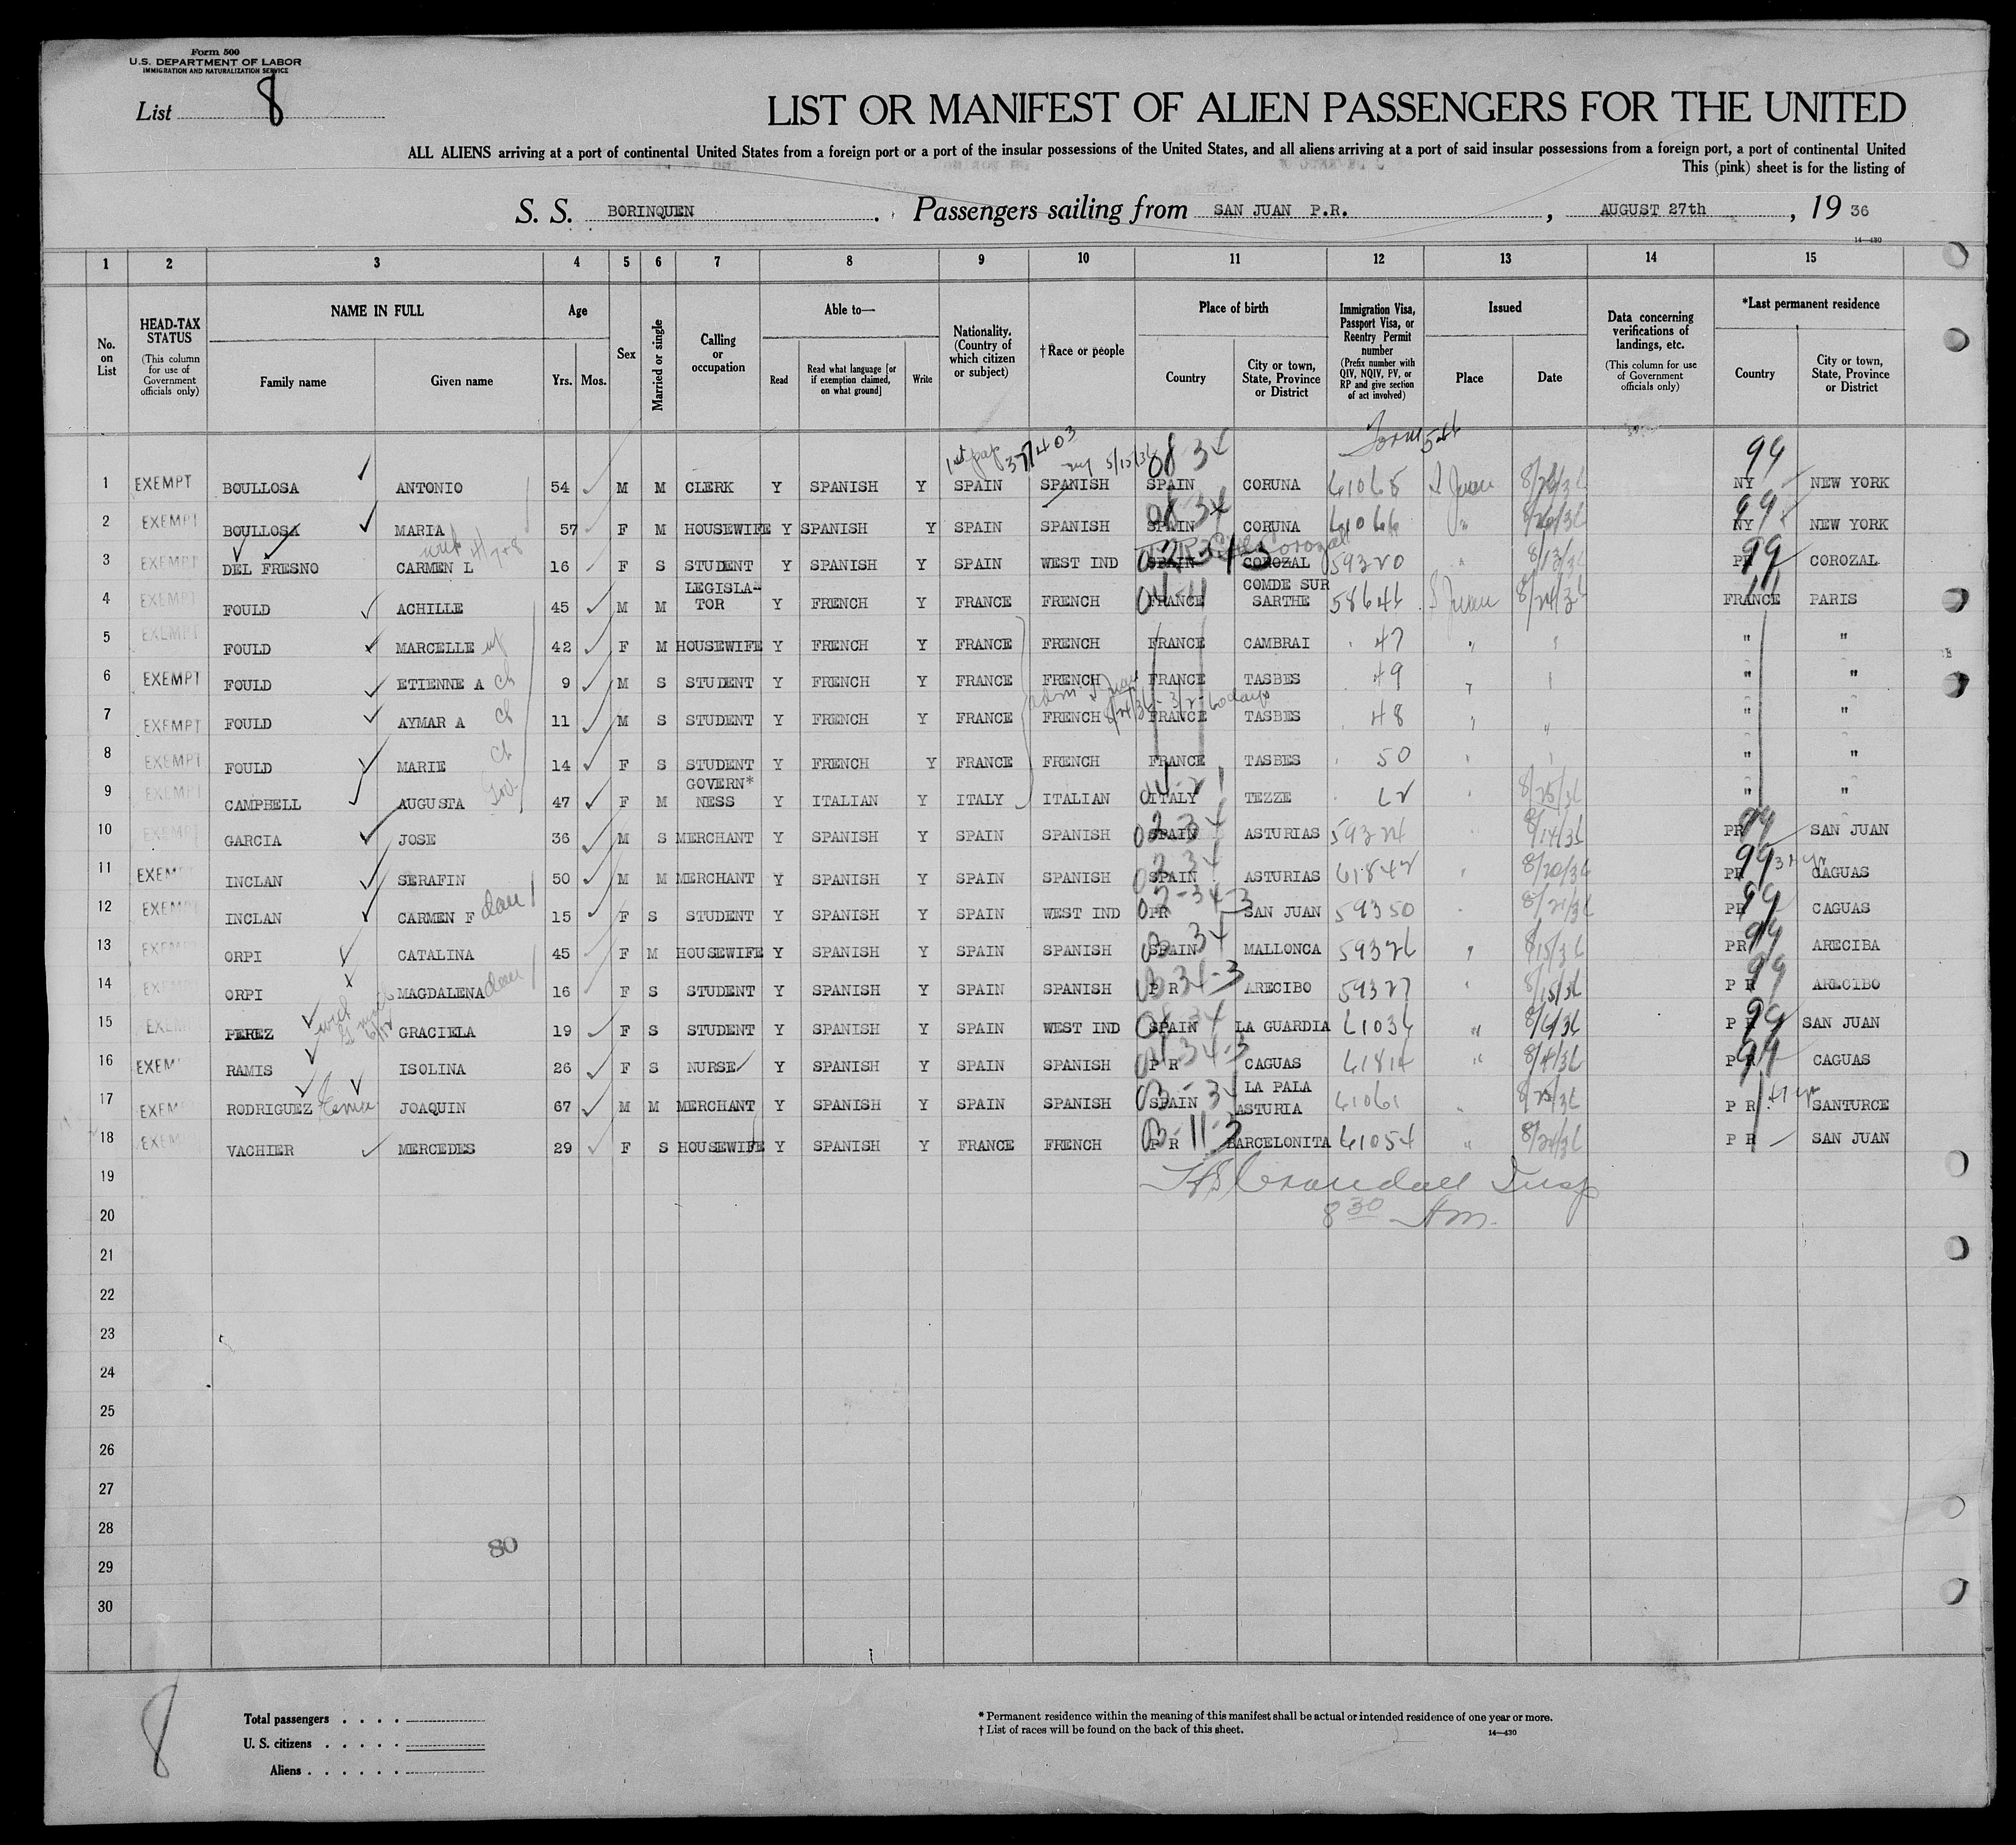 Form 500
U.S. DEPARTMENT OF LABOR
IMMIGRATION AND NATURALIZATION SERVICE
List 8
LIST OR MANIFEST OF ALIEN PASSENGERS FOR THE UNITED
ALL ALIENS arriving at a port of continental United States from a foreign port or a port of the insular possessions of the United States, and all aliens arriving at a port of said insular possessions from a foreign port, a port of continental United
This (pink) sheet is for the listing of
S. S. BORINQUEN. Passengers sailing from SAN JUAN P.R., AUGUST 27th, 19 36
14—430
1 2 3 4 5 6 7 8 9 10 11 12 13 14 15
No. on List
HEAD-TAX STATUS (This column for use of Government officials only)
NAME IN FULL
Family name Given name
Age
Yrs. Mos.
Sex
Married or single
Calling or occupation
Able to—
Read Read what language [or if exemption claimed, on what ground] Write
Nationality. (Country of which citizen or subject)
† Race or people
Place of birth
Country City or town, State, Province or District
Immigration Visa, Passport Visa, or Reentry Permit number (Prefix number with QIV, NQIV, PV, or RP and give section of act involved)
Issued
Place Date
Data concerning verifications of landings, etc. (This column for use of Government officials only)
*Last permanent residence
Country City or town, State, Province or District
1st pap 37/403 5/15/36 08 34 Form 546 99
1 EXEMPT BOULLOSA ANTONIO 54 M M CLERK Y SPANISH Y SPAIN SPANISH SPAIN CORUNA 61065 S Juan 8/26/36 NY NEW YORK
2 EXEMPT BOULLOSA MARIA 57 F M HOUSEWIFE Y SPANISH Y SPAIN SPANISH SPAIN CORUNA 61066 " 8/26/36 NY 99 NEW YORK
3 EXEMPT DEL FRESNO CARMEN L 16 F S STUDENT Y SPANISH Y SPAIN WEST IND SPAIN COROZAL 59320 " 8/13/36 PR 99 COROZAL
4 EXEMPT FOULD ACHILLE 45 M M LEGISLA-TOR Y FRENCH Y FRANCE FRENCH FRANCE COMDE SUR SARTHE 58646 S Juan 8/24/36 FRANCE PARIS
5 EXEMPT FOULD MARCELLE wf 42 F M HOUSEWIFE Y FRENCH Y FRANCE FRENCH FRANCE CAMBRAI 47 " " " "
6 EXEMPT FOULD ETIENNE A ch 9 M S STUDENT Y FRENCH Y FRANCE FRENCH FRANCE TASBES 49 " " " "
adm. S Juan 8/24/36 - 3/2 - 60 days
7 EXEMPT FOULD AYMAR A ch 11 M S STUDENT Y FRENCH Y FRANCE FRENCH FRANCE TASBES 48 " " " "
8 EXEMPT FOULD MARIE ch 14 F S STUDENT Y FRENCH Y FRANCE FRENCH FRANCE TASBES 50 " " " "
9 EXEMPT CAMPBELL AUGUSTA Gov. 47 F M GOVERN* NESS Y ITALIAN Y ITALY ITALIAN ITALY TEZZE 62 " 8/25/36 " "
10 EXEMPT GARCIA JOSE 36 M S MERCHANT Y SPANISH Y SPAIN SPANISH SPAIN ASTURIAS 59324 " 8/14/36 PR 99 SAN JUAN
11 EXEMPT INCLAN SERAFIN 50 M M MERCHANT Y SPANISH Y SPAIN SPANISH SPAIN ASTURIAS 61842 " 8/20/36 PR 99 CAGUAS
12 EXEMPT INCLAN CARMEN F dau 15 F S STUDENT Y SPANISH Y SPAIN WEST IND PR SAN JUAN 59350 " 8/21/36 PR 99 CAGUAS
13 EXEMPT ORPI CATALINA 45 F M HOUSEWIFE Y SPANISH Y SPAIN SPANISH SPAIN MALLONCA 59326 " 8/15/36 PR 99 ARECIBA
14 EXEMPT ORPI MAGDALENA dau 16 F S STUDENT Y SPANISH Y SPAIN SPANISH P R ARECIBO 59327 " 8/15/36 P R 99 ARECIBO
15 EXEMPT PEREZ GRACIELA 19 F S STUDENT Y SPANISH Y SPAIN WEST IND SPAIN LA GUARDIA 61036 " 8/6/36 P R 99 SAN JUAN
16 EXEMPT RAMIS ISOLINA 26 F S NURSE Y SPANISH Y SPAIN SPANISH P R CAGUAS 61814 " 8/4/36 P R 99 CAGUAS
17 EXEMPT RODRIGUEZ JOAQUIN 67 M M MERCHANT Y SPANISH Y SPAIN SPANISH SPAIN LA PALA ASTURIA 61061 " 8/25/36 P R SANTURCE
18 EXEMPT VACHIER MERCEDES 29 F S HOUSEWIFE Y SPANISH Y FRANCE FRENCH P R BARCELONITA 61054 " 8/24/36 P R SAN JUAN
19 Crandall Insp
20 8 30 Am.
21
22
23
24
25
26
27
28
80
29
30
8
Total passengers
U. S. citizens
Aliens
* Permanent residence within the meaning of this manifest shall be actual or intended residence of one year or more.
† List of races will be found on the back of this sheet.
14—430